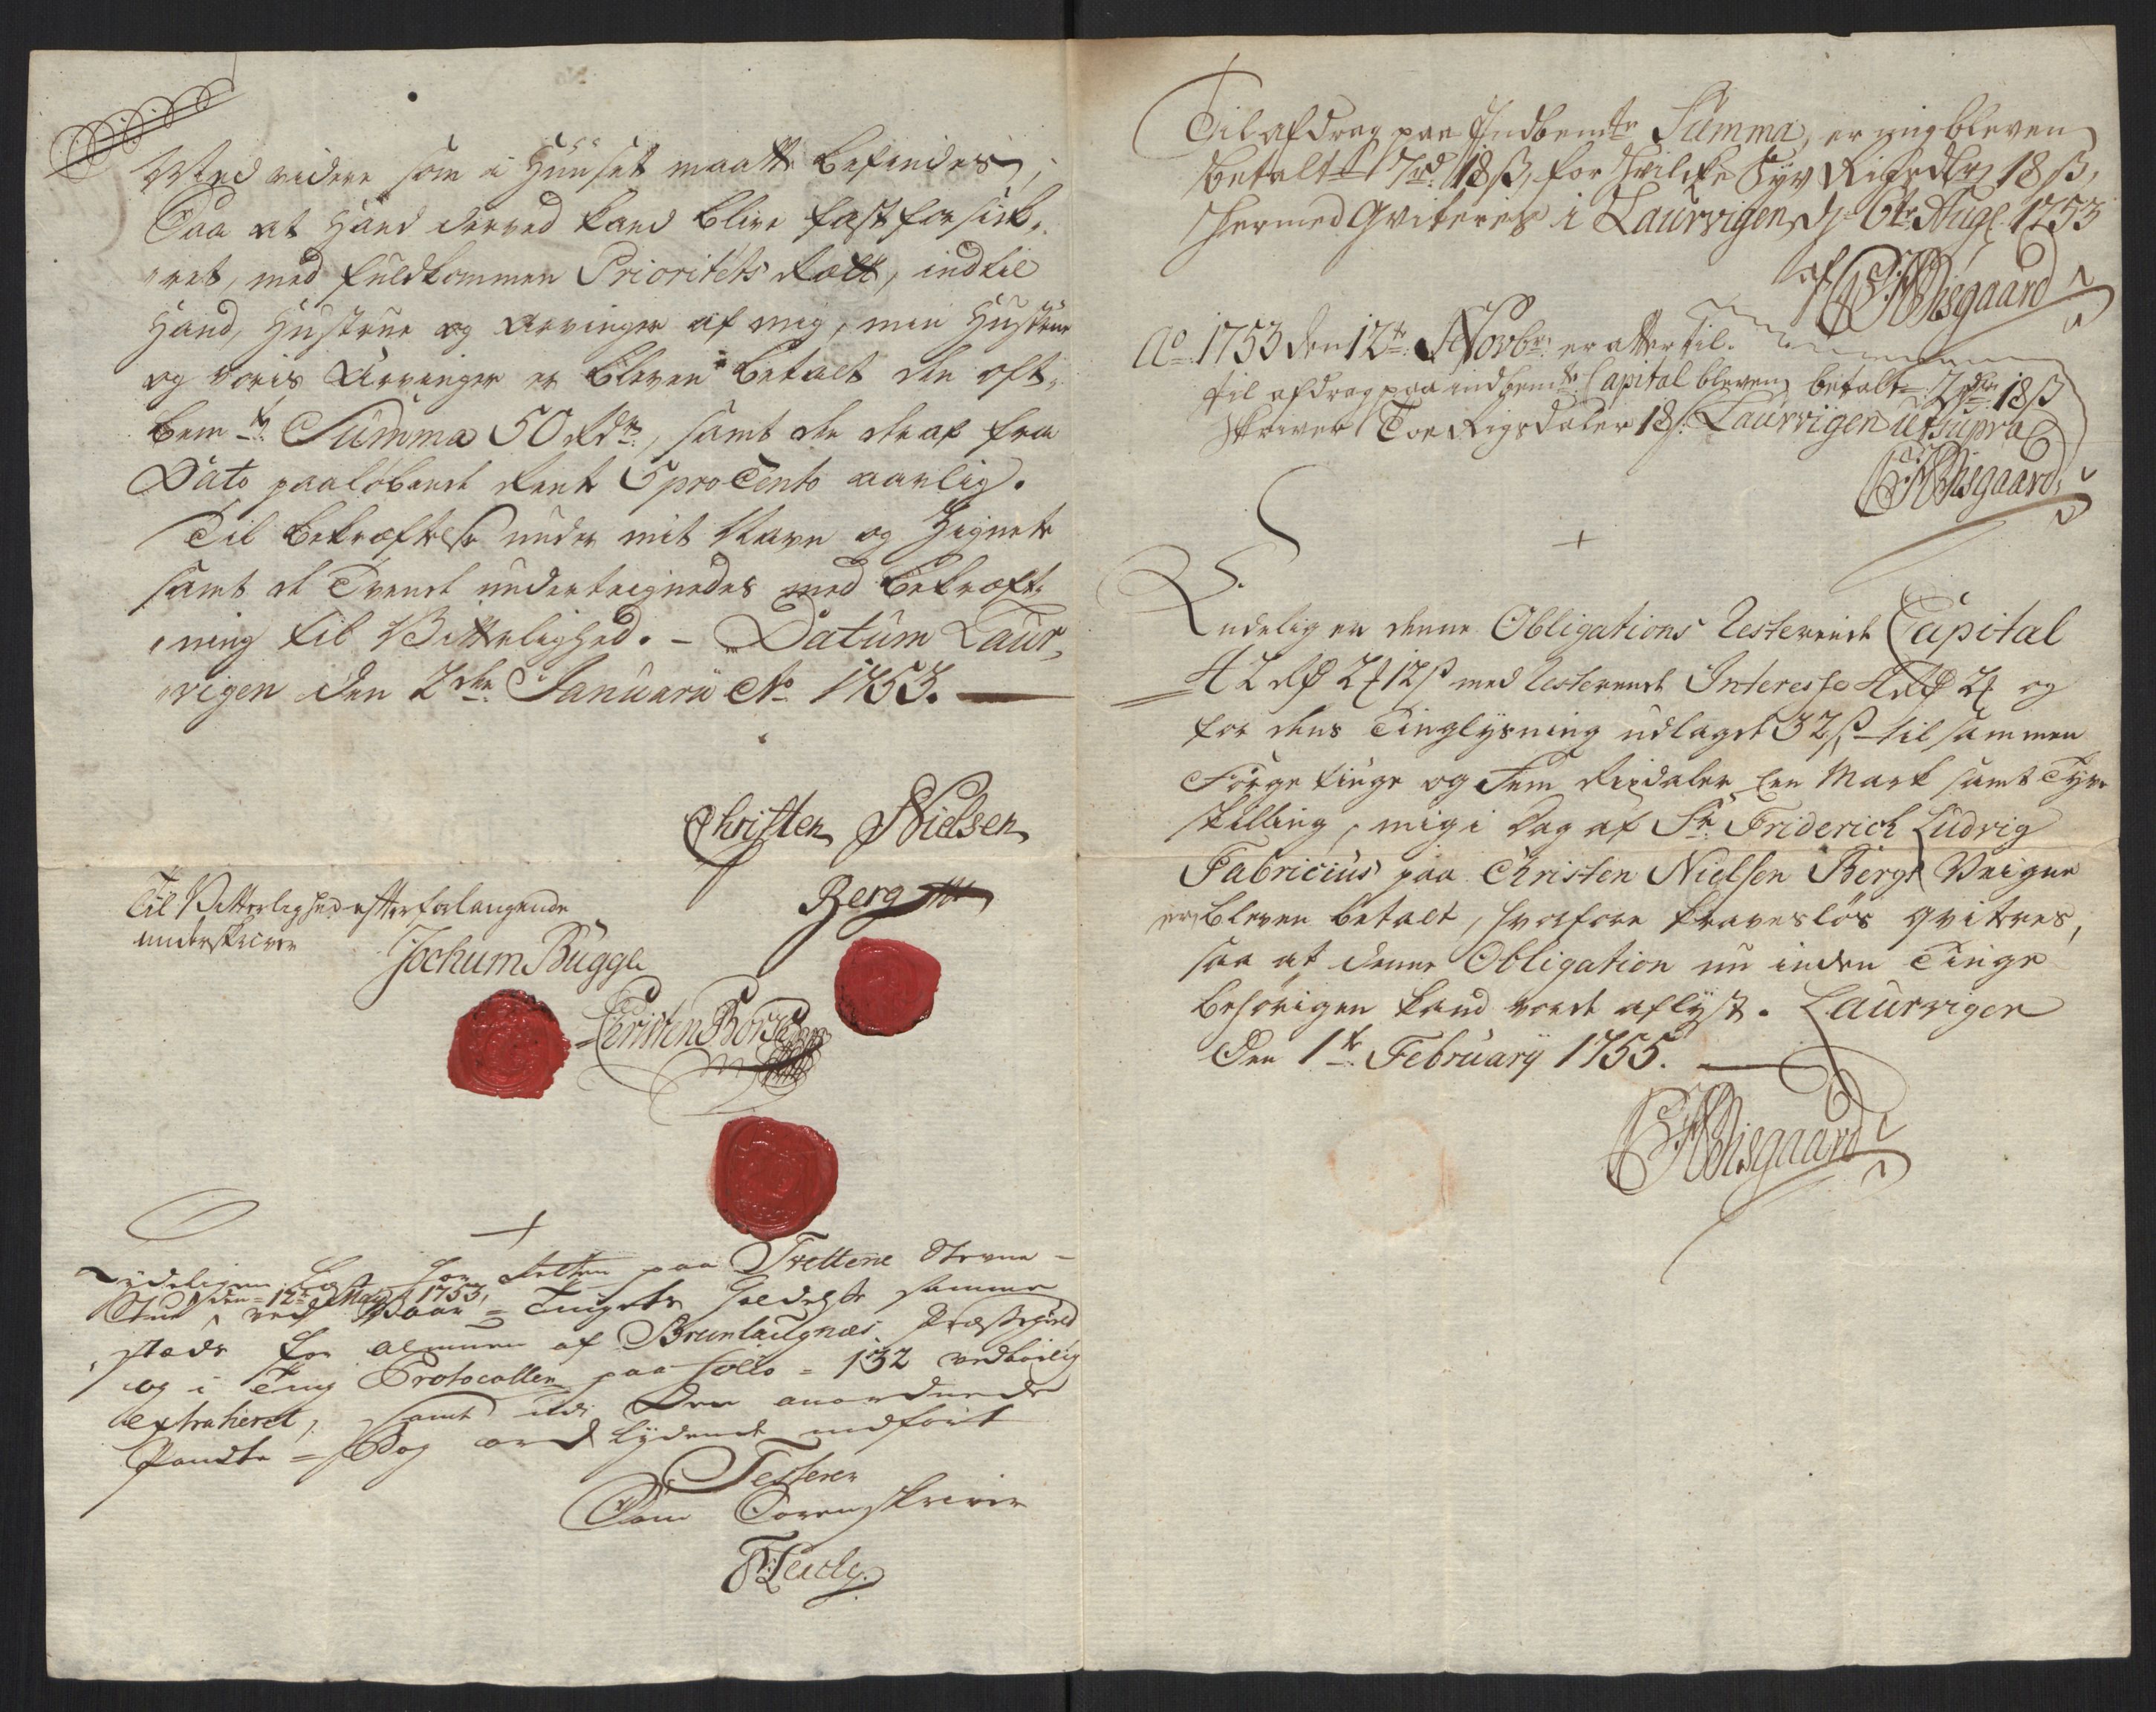 Med videre som i Huuset maatte befindes,
Paa at Hand derved kand blive fast forsik-
ret, med fuldkommen Prioritets Rætt, indtil
Hand, Hustrue og Arvinger af mig, min Hustrue
og voris Arvinger er bleven betalt den oft-
bemte Summa 50 Rdr, samt den deraf fra
Dato paaløbende Rente 5 pro Cento aarlig.
Til bekræftelse under mit Navn og Zignete
samt et Tvende undertegnedes med bekræft-
ning til Vitterlighed. - Datum Laur-
vigen den 2den Januarii Ao 1753.
Christen Nielsen
Berg
Til Vitterlighed efter forlangende
underskriver
Jochum Bugge
Christen Borse
Lydeligen Læst for Retten paa Tvettene Stevne-
Stue den 12te May 1753, ved Vaar-Tingets Holdelse samme-
steds for almuen af Brunlaugnæs Præstegield
og i Ting Protocollen paa folio - 132 vedbørlig
extraheret, samt udi Den anordnede
Pandte-Bog ord lydende indført
Testerer
Som Sorenskriver
Til afdrag paa Indbemte Summa, er mig bleven
betalt 7 rd 18 ß, for hvilke Syv Rigsdlr 18 ß,
hermed Qviteris i Laurvigen, d. 6te Augs. 1753
af
Wisgaard
Ao 1753 den 12te Novbr er atter til-
til afdrag paa indbemte Capital bleven betalt 2 rdr 18 ß
skriver Toe Rigsdaler 18 ß. Laurvigen ut supra
Wisgaard
Endelig er denne Obligations Resterende Capital
42 rdl 2 12 ß med Resterende Interesse 2 og
for dens Tinglysning udlagdt 32 ß til sammen
Førgetiuge og Fem Rixdaler Een Mark samt Tyve
skilling, mig i Dag af Sr. Friderich Ludvig
Fabricius paa Christen Nielsen Bergs Veigne
er bleven betalt, hvorfore kravesløs qviteres,
saa at denne Obligation nu inden Tinge
behørigen kand vorde aflyst. Laurvigen
Den 1te February 1755.
Wisgaard